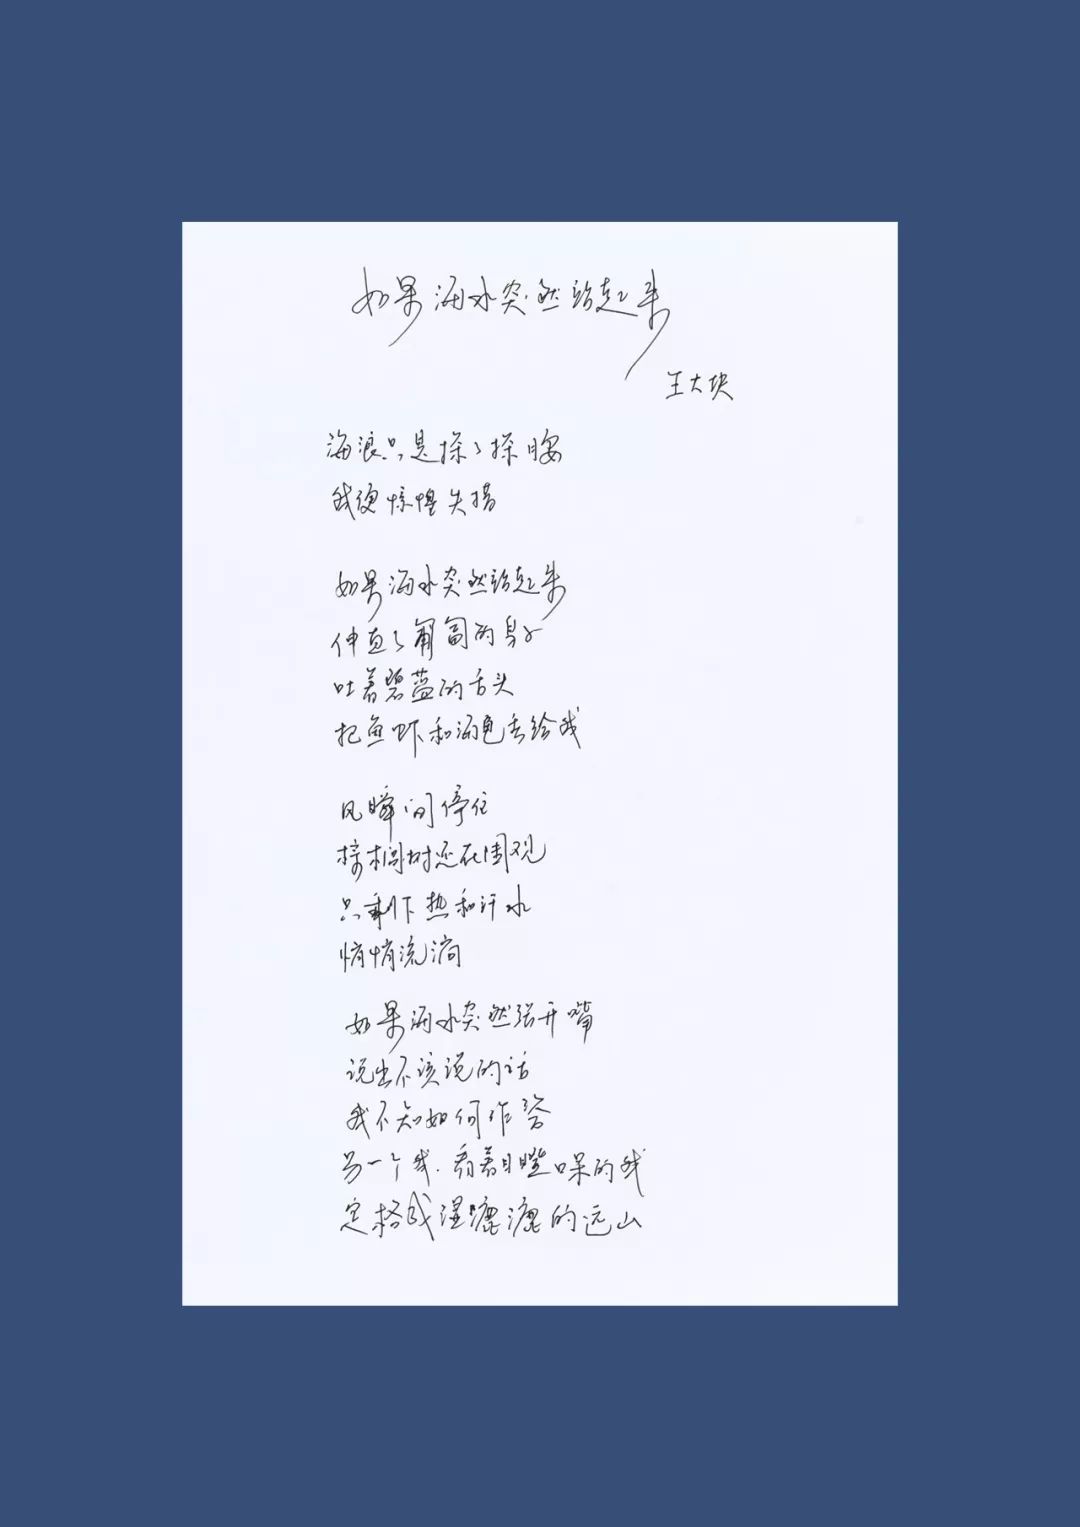 如果海水突然站起来
王大块
海浪只是探了探腰
我便惊惶失措
如果海水突然站起来
伸直了匍匐的身子
吐着碧蓝的舌头
把鱼虾和海龟丢给我
风瞬间停住
棕榈树还在围观
只剩下热和汗水
悄悄流淌
如果海水突然张开嘴
说出不该说的话
我不知如何作答
另一个我,看着目瞪口呆的我
定格成湿漉漉的远山